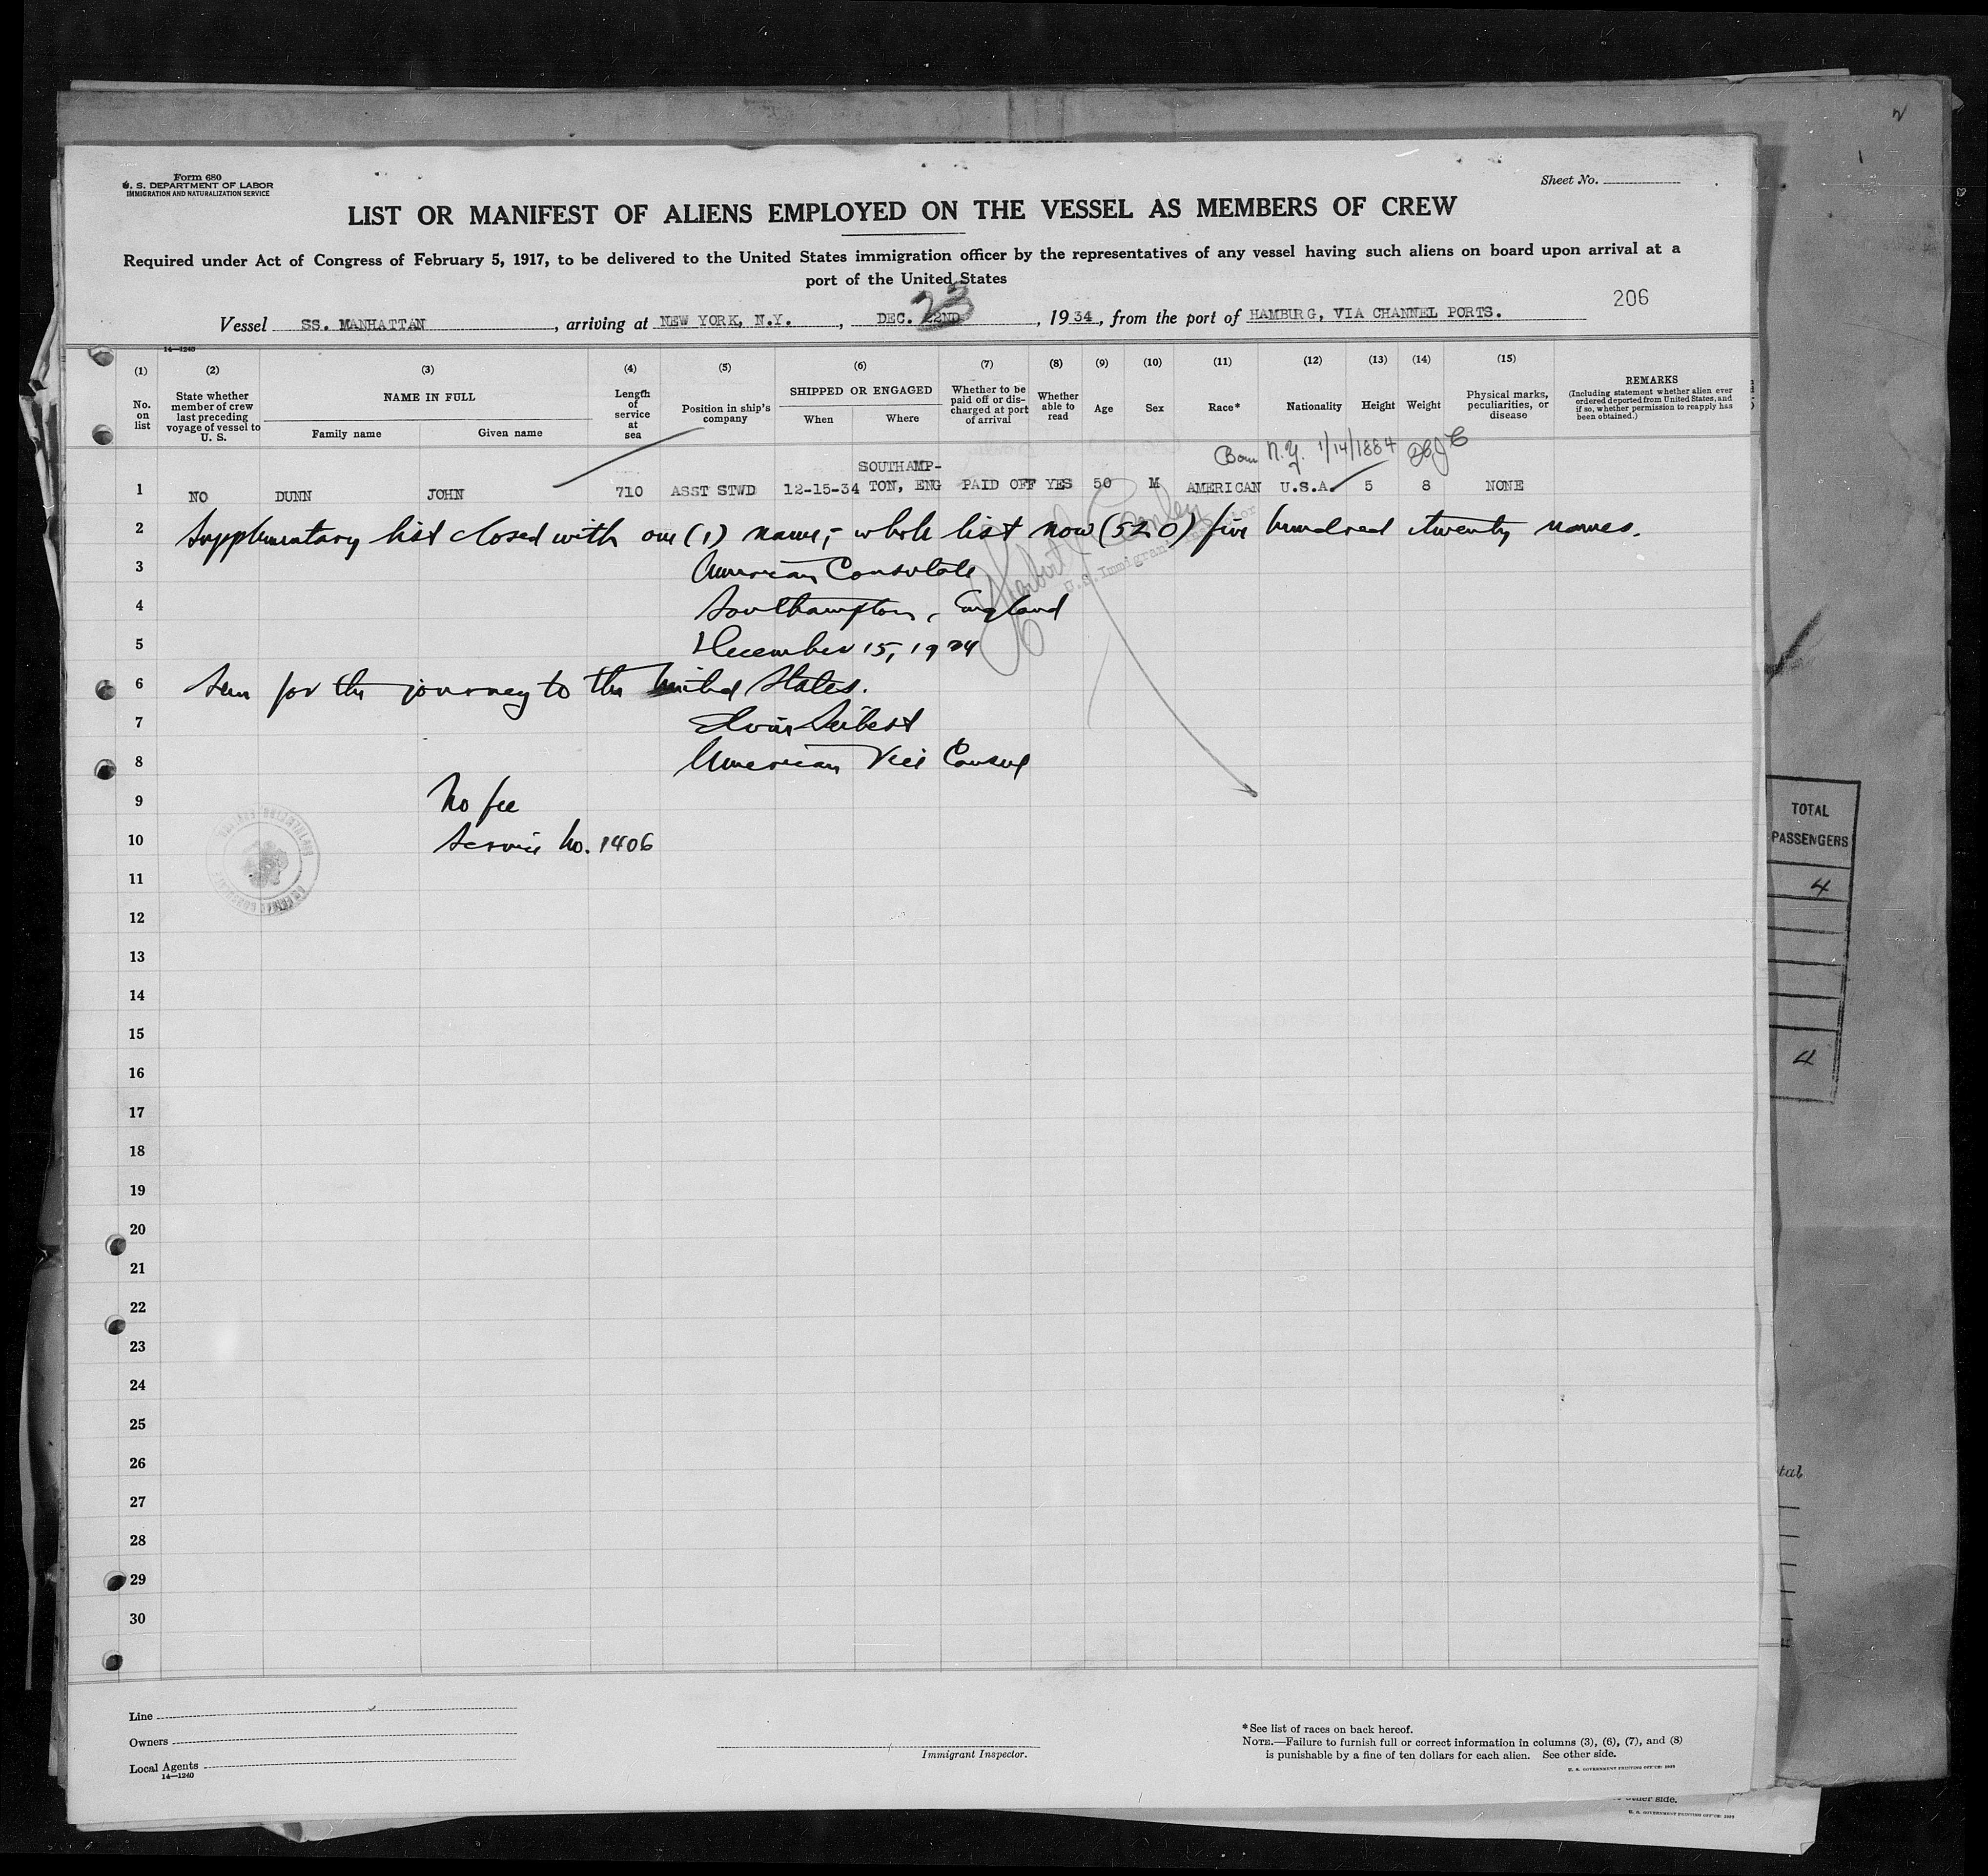 Form 680
U. S. DEPARTMENT OF LABOR
IMMIGRATION AND NATURALIZATION SERVICE
Sheet No.
LIST OR MANIFEST OF ALIENS EMPLOYED ON THE VESSEL AS MEMBERS OF CREW
Required under Act of Congress of February 5, 1917, to be delivered to the United States immigration officer by the representatives of any vessel having such aliens on board upon arrival at a
port of the United States
206
Vessel SS. MANHATTAN, arriving at NEW YORK, N.Y., DEC. 22ND 23, 1934, from the port of HAMBURG, VIA CHANNEL PORTS.
14—1240
(1) (2) (3) (4) (5) (6) (7) (8) (9) (10) (11) (12) (13) (14) (15)
No. on list
State whether member of crew last preceding voyage of vessel to U. S.
NAME IN FULL
Family name
Given name
Length of service at sea
Position in ship's company
SHIPPED OR ENGAGED
When
Where
Whether to be paid off or discharged at port of arrival
Whether able to read
Age
Sex
Race*
Nationality
Height
Weight
Physical marks, peculiarities, or disease
REMARKS
(Including statement whether alien ever ordered deported from United States, and if so, whether permission to reapply has been obtained.)
Born N.Y. 1/14/1884
1 NO DUNN JOHN 710 ASST STWD 12-15-34 SOUTHAMP-TON, ENG PAID OFF YES 50 M AMERICAN U.S.A. 5 8 NONE
2 Supplementary list closed with one (1) name; - whole list now (520) five hundred twenty names.
U.S. Immigrant Inspector
3 American Consulate
4 Southampton, England
5 December 15, 1934
6 Seen for the journey to the United States.
7 Seibert
8 American Vice Consul
9 No fee
10 Service No. 1406
11
12
13
14
15
16
17
18
19
20
21
22
23
24
25
26
27
28
29
30
TOTAL
PASSENGERS
4
4
tal
Line
Owners
Local Agents
14—1240
Immigrant Inspector.
*See list of races on back hereof.
NOTE.—Failure to furnish full or correct information in columns (3), (6), (7), and (8)
is punishable by a fine of ten dollars for each alien. See other side.
U. S. GOVERNMENT PRINTING OFFICE:
other side.
U. S. GOVERNMENT PRINTING OFFICE: